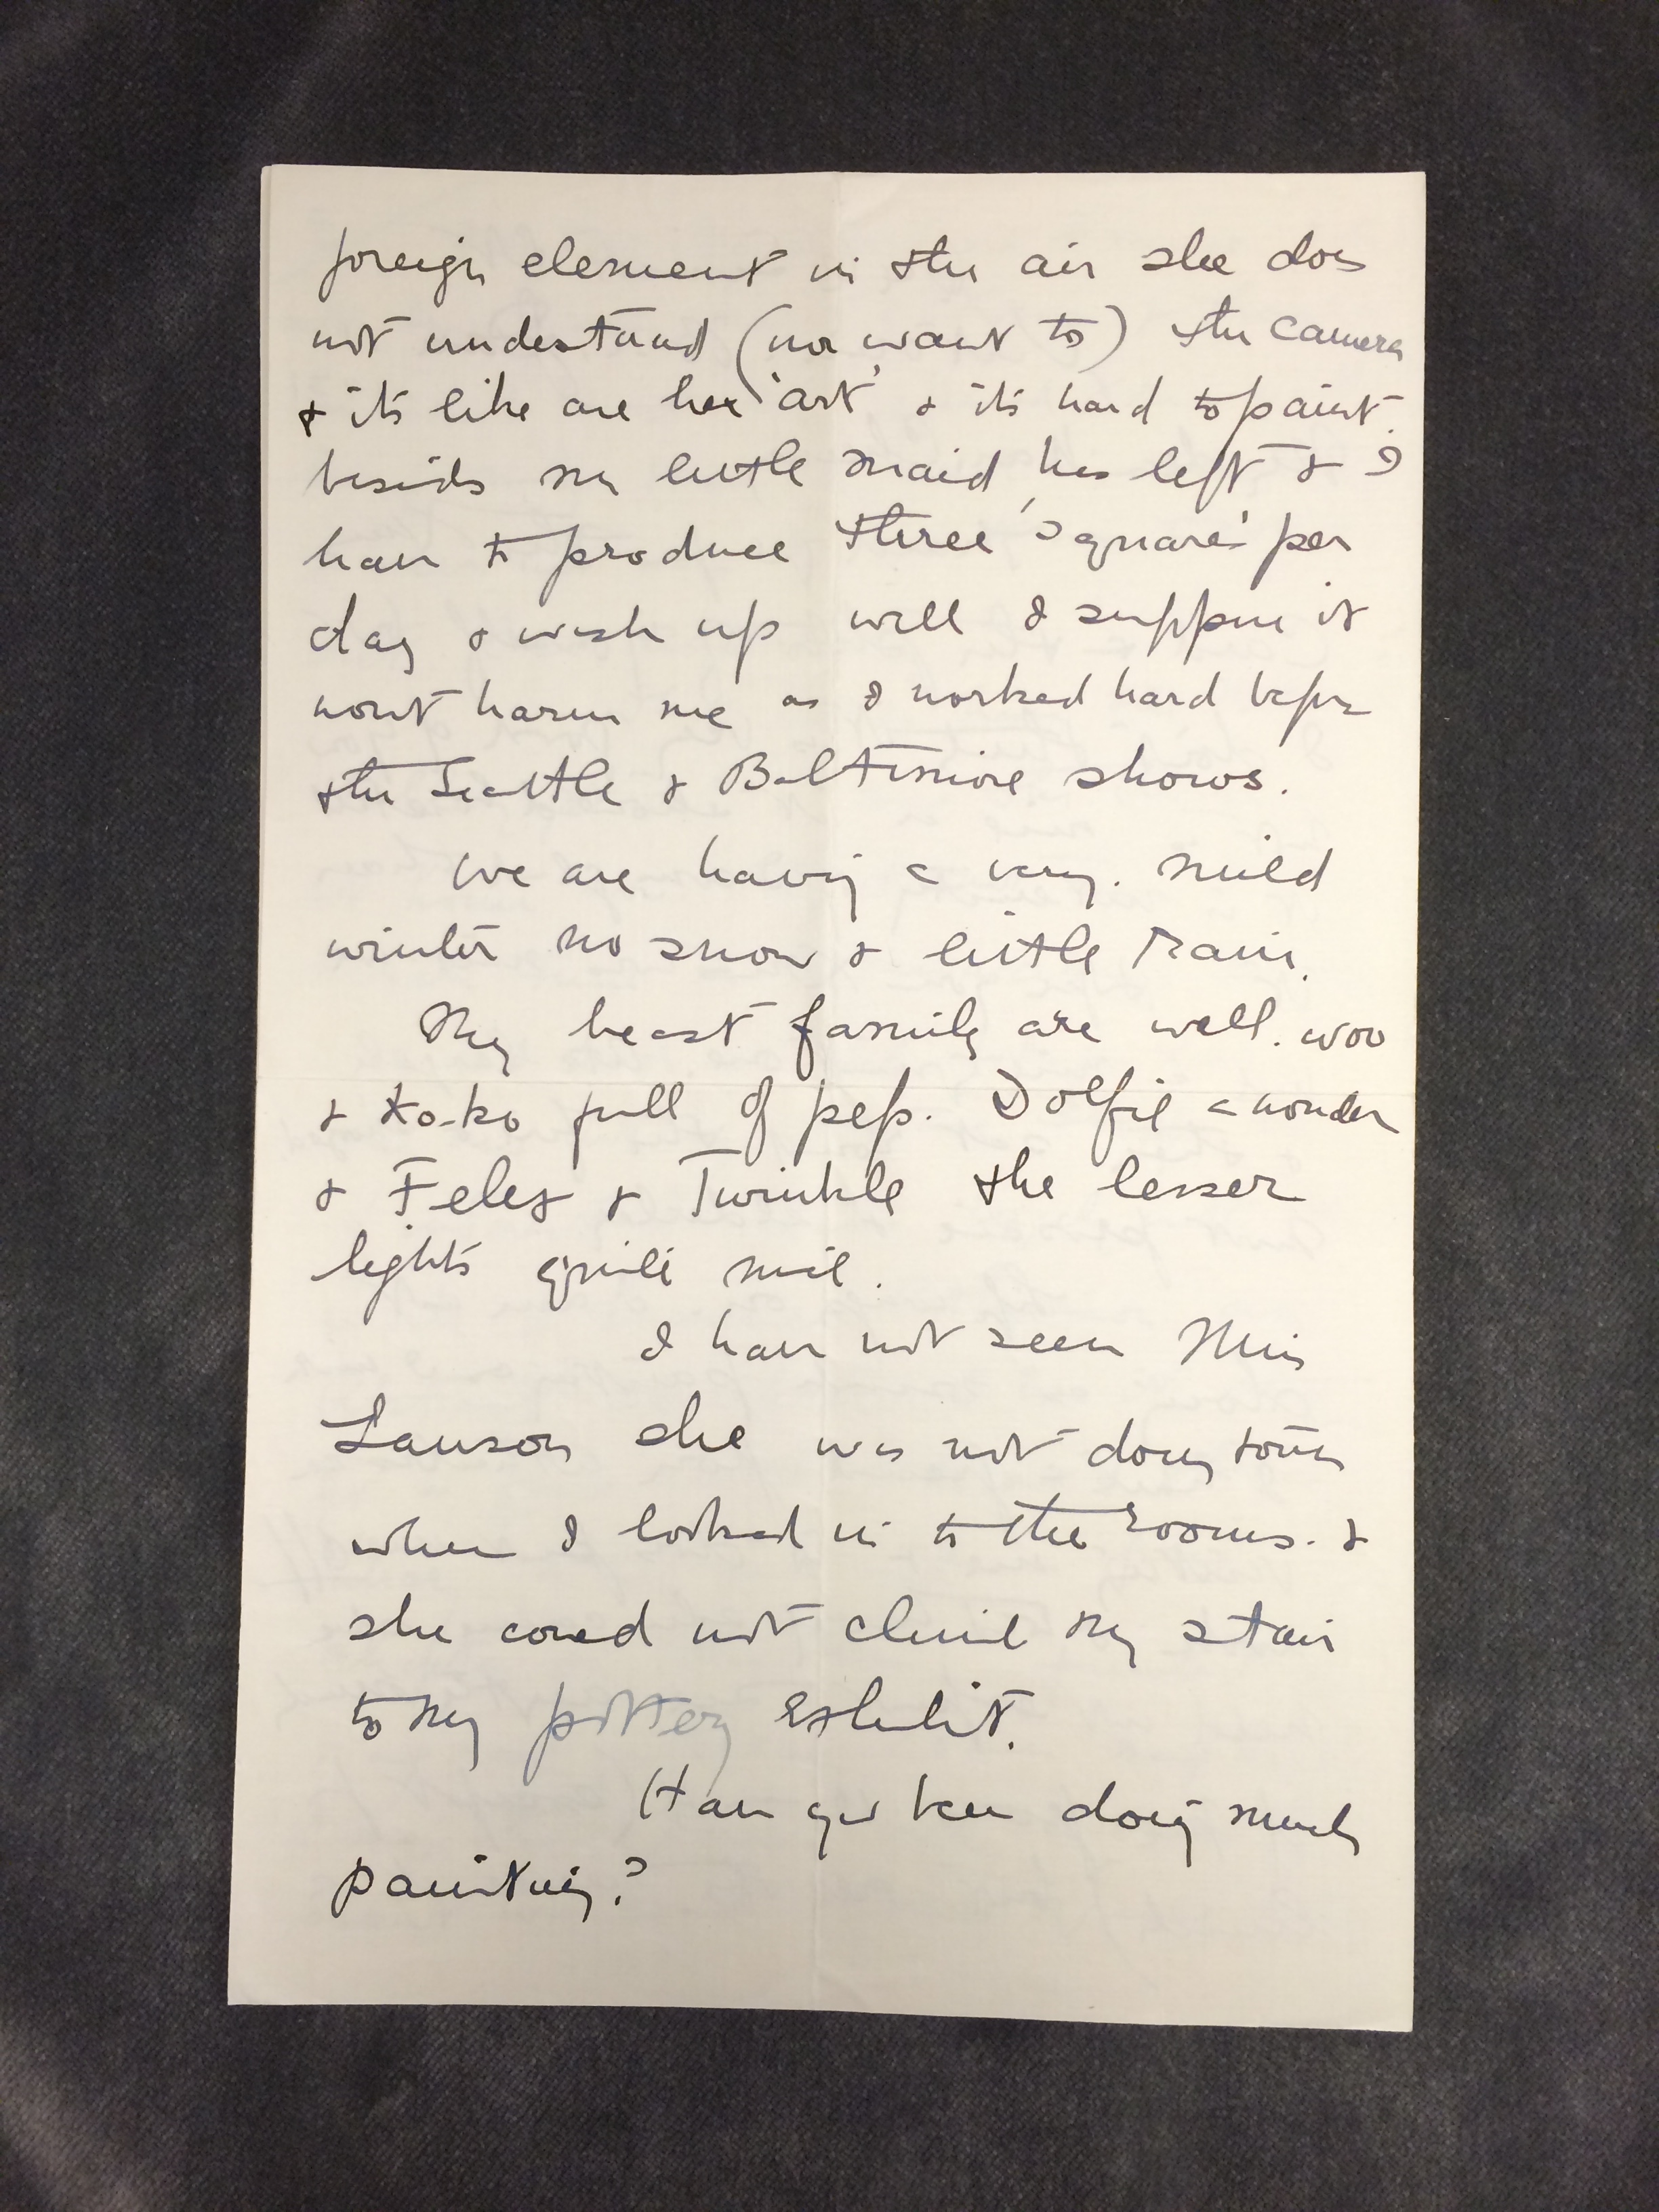 foreign element in the air she does
not understand (nor want to) the camera
& its like are her 'art' & its hard to paint.
besids my little maid has left & I
have to produce three 'square' per
day & wash up well I suppose it
wont harm me as I worked hard before
the Seattle & Baltimore shows.
We are having a very. mild
winter no snow & little rain.
My beast family are well. Woo
& Ko-ko full of pep. Dolfie a wonder
& & Twinkle the lesser
lights quite nice.
I have not seen Miss
Lawson she was not down town
when I looked in to the rooms. &
she could not climb my stair
to my pottery exhibit.
Have you been doing much
painting?